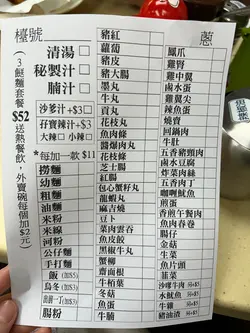 檯號
清湯
秘製汁
腩汁
沙爹汁+$3
孖寶辣汁+$3
大辣 小辣
*每加一款 $11
(3餸麵套餐 $52 送熱餐飲，外賣碗每個加$2元)
撈麵
幼麵
粗麵
油麵
米粉
米線
河粉
公仔麵
手打麵
飯
烏冬
腸粉
豬紅
蘿蔔
豬皮
豬大腸
墨丸
牛丸
貢丸
花枝丸
魚肉條
醬爆肉丸
花枝片
芝士腸
紅腸
包心蟹籽丸
龍蝦丸
麻吉燒
豆卜
菜肉雲吞
魚皮餃
黃金魚蛋
蟹柳
齋滷根
生根
冬菇
魚蛋
牛腩
蔥
鳳爪
雞腎
雞中翼
鹵水蛋
雞翼尖
辣魚蛋
燒賣
回鍋肉
牛肚
五香豬頸肉
鹵水豆腐
炸菜肉絲
五香肉丁
咖喱魷魚
煎蛋
香煎午餐肉
魚肉春卷
腸仔
金菇
生菜
魚片頭
韮菜
沙嗲牛肉
水魷魚
牛雜
豬油渣